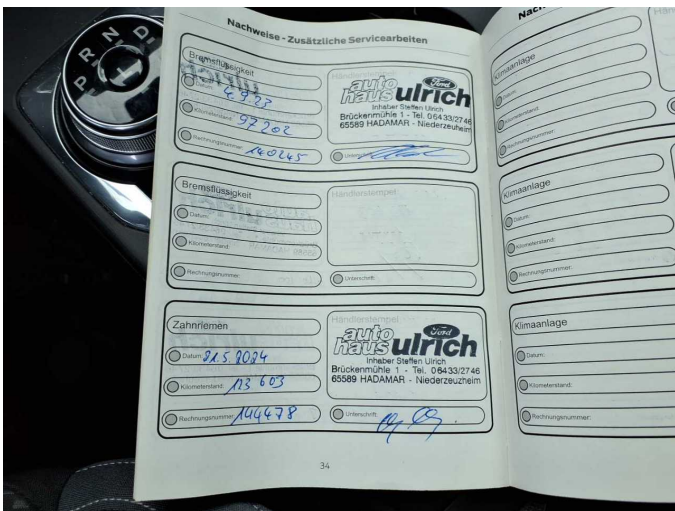 P R N D
Nachweise - Zusätzliche Servicearbeiten
Bremsflüssigkeit
Datum:
Kilometerstand: 97 202
Rechnungsnummer: 140245
Händlerstempel
auto haus ulrich Ford
Inhaber Steffen Ulrich
Brückenmühle 1 - Tel. 06433/2746
65589 HADAMAR - Niederzeuzheim
Unterschrift:
Bremsflüssigkeit
Datum:
Kilometerstand:
Rechnungsnummer:
Händlerstempel
Unterschrift:
Zahnriemen
Datum: 21.5.2024
Kilometerstand: 113 603
Rechnungsnummer: 144478
Händlerstempel
auto haus ulrich Ford
Inhaber Steffen Ulrich
Brückenmühle 1 - Tel. 06433/2746
65589 HADAMAR - Niederzeuzheim
Unterschrift:
34
Klimaanlage
Datum:
Kilometerstand:
Rechnungsnummer:
Klimaanlage
Datum:
Kilometerstand:
Rechnungsnummer:
Klimaanlage
Datum:
Kilometerstand:
Rechnungsnummer: